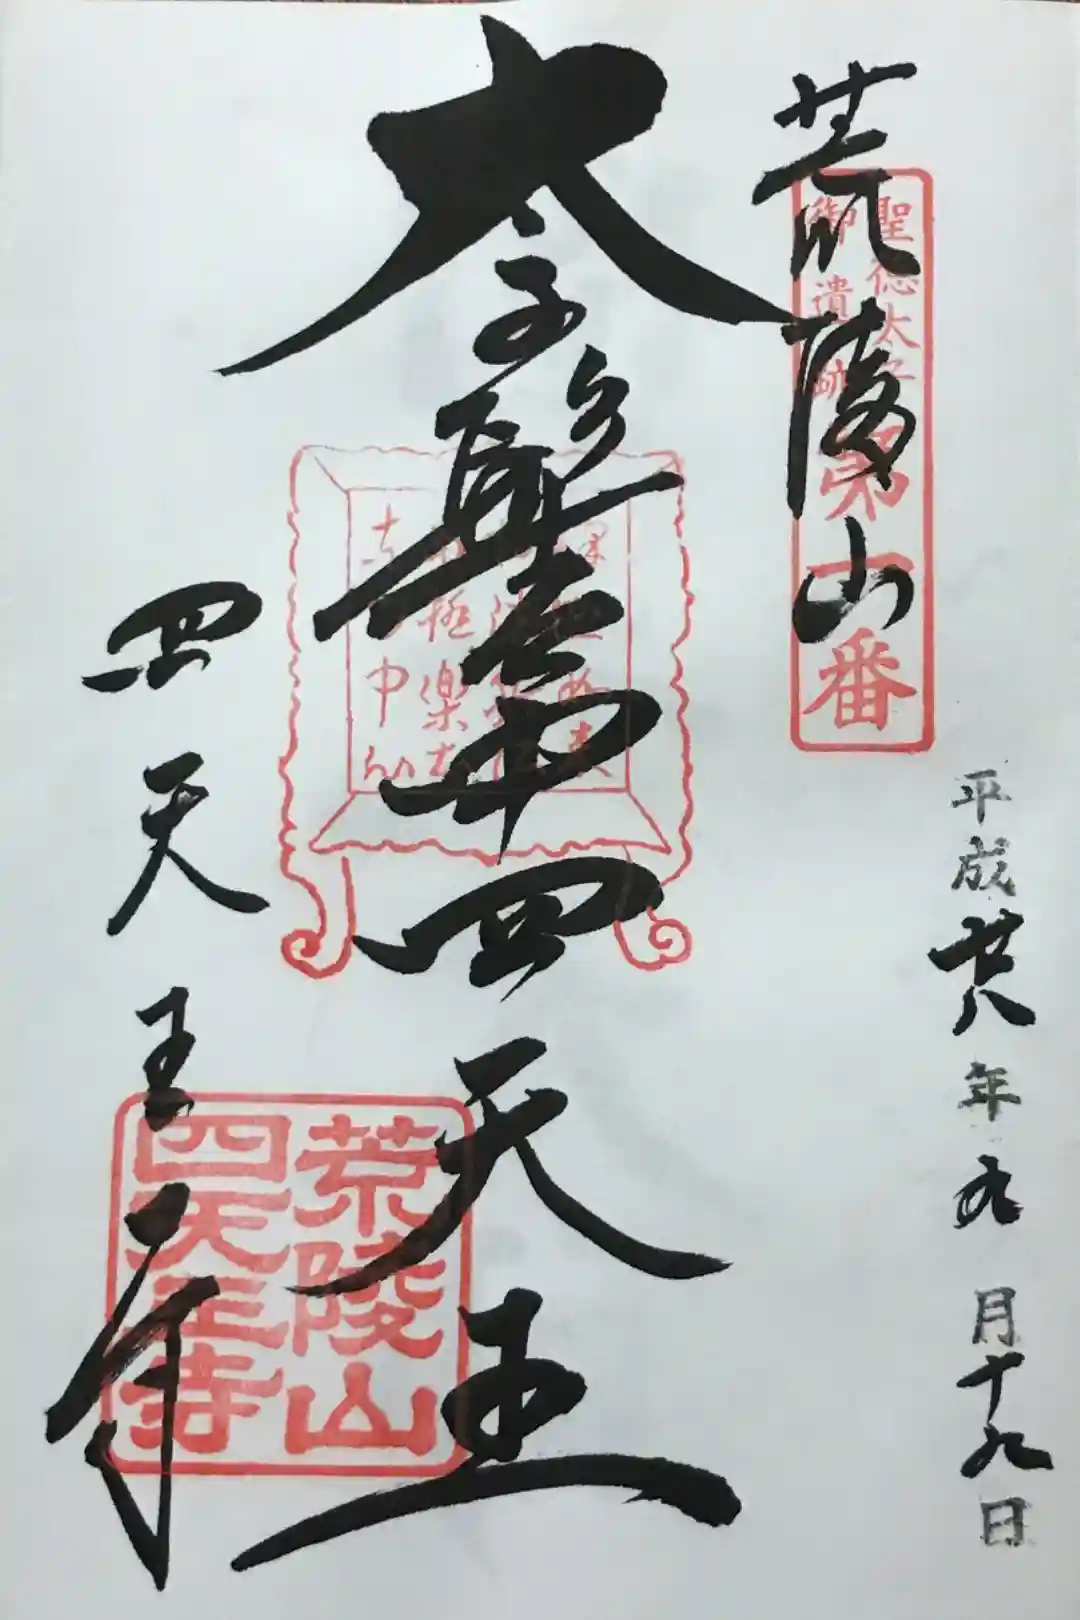 荒陵山
聖徳太子
御遺跡
第一番
平成廿八年九月十九日
太子髻中四天王
極楽土
中心
四天王寺
荒陵山
四天王寺